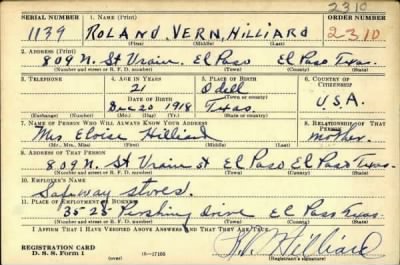 2310
SERIAL NUMBER 1. NAME (Print) ORDER NUMBER
1139 ROLAND VERN HILLIARD 2310
(First) (Middle) (Last)
2. ADDRESS (Print)
809 N. St Vrain, El Paso El Paso Texas.
(Number and street or R. F. D. number) (Town) (County) (State)
3. TELEPHONE 4. AGE IN YEARS 5. PLACE OF BIRTH 6. COUNTRY OF CITIZENSHIP
21 Odell
DATE OF BIRTH
Dec 20 1918 Texas. U.S.A.
(Exchange) (Number) (Mo.) (Day) (Yr.) (Town or county) (State or country)
7. NAME OF PERSON WHO WILL ALWAYS KNOW YOUR ADDRESS 8. RELATIONSHIP OF THAT PERSON
Mrs Eloise Hilliard mother.
(Mr., Mrs., Miss) (First) (Middle) (Last)
9. ADDRESS OF THAT PERSON
809 N. St Vrain st El Paso El Paso Texas.
(Number and street or R. F. D. number) (Town) (County) (State)
10. EMPLOYER'S NAME
Safeway stores.
11. PLACE OF EMPLOYMENT OR BUSINESS
3525 Pershing drive El Paso Texas.
(Number and street or R. F. D. number) (Town) (County) (State)
I AFFIRM THAT I HAVE VERIFIED ABOVE ANSWERS AND THAT THEY ARE TRUE.
REGISTRATION CARD
D. S. S. Form 1 Hilliard
(Registrant's signature)